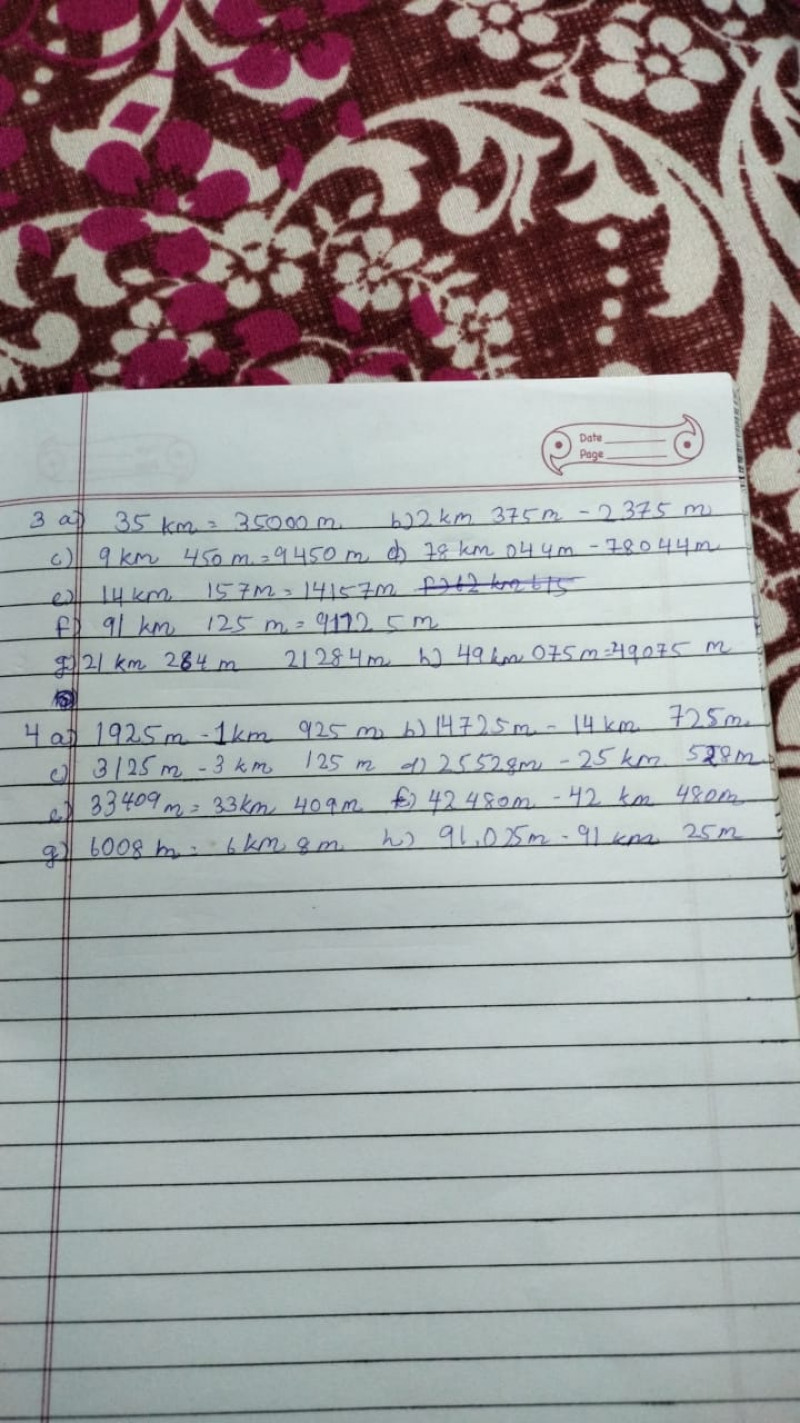 Date
Page
3 a) 35 km = 35000 m b) 2 km 375 m - 2375 m
c) 9 km 450 m = 9450 m d) 78 km 044 m - 78044 m
e) 14 km 157 m = 14157 m f) 62 km 615
f) 91 km 125 m = 91125 m
g) 21 km 284 m 21284 m h) 49 km 075 m = 49075 m
4 a) 1925 m - 1 km 925 m b) 14725 m - 14 km 725 m
c) 3125 m - 3 km 125 m d) 25528 m - 25 km 528 m
e) 33409 m = 33 km 409 m f) 42480 m - 42 km 480 m
g) 6008 m - 6 km 8 m h) 91.025 m - 91 km 25 m